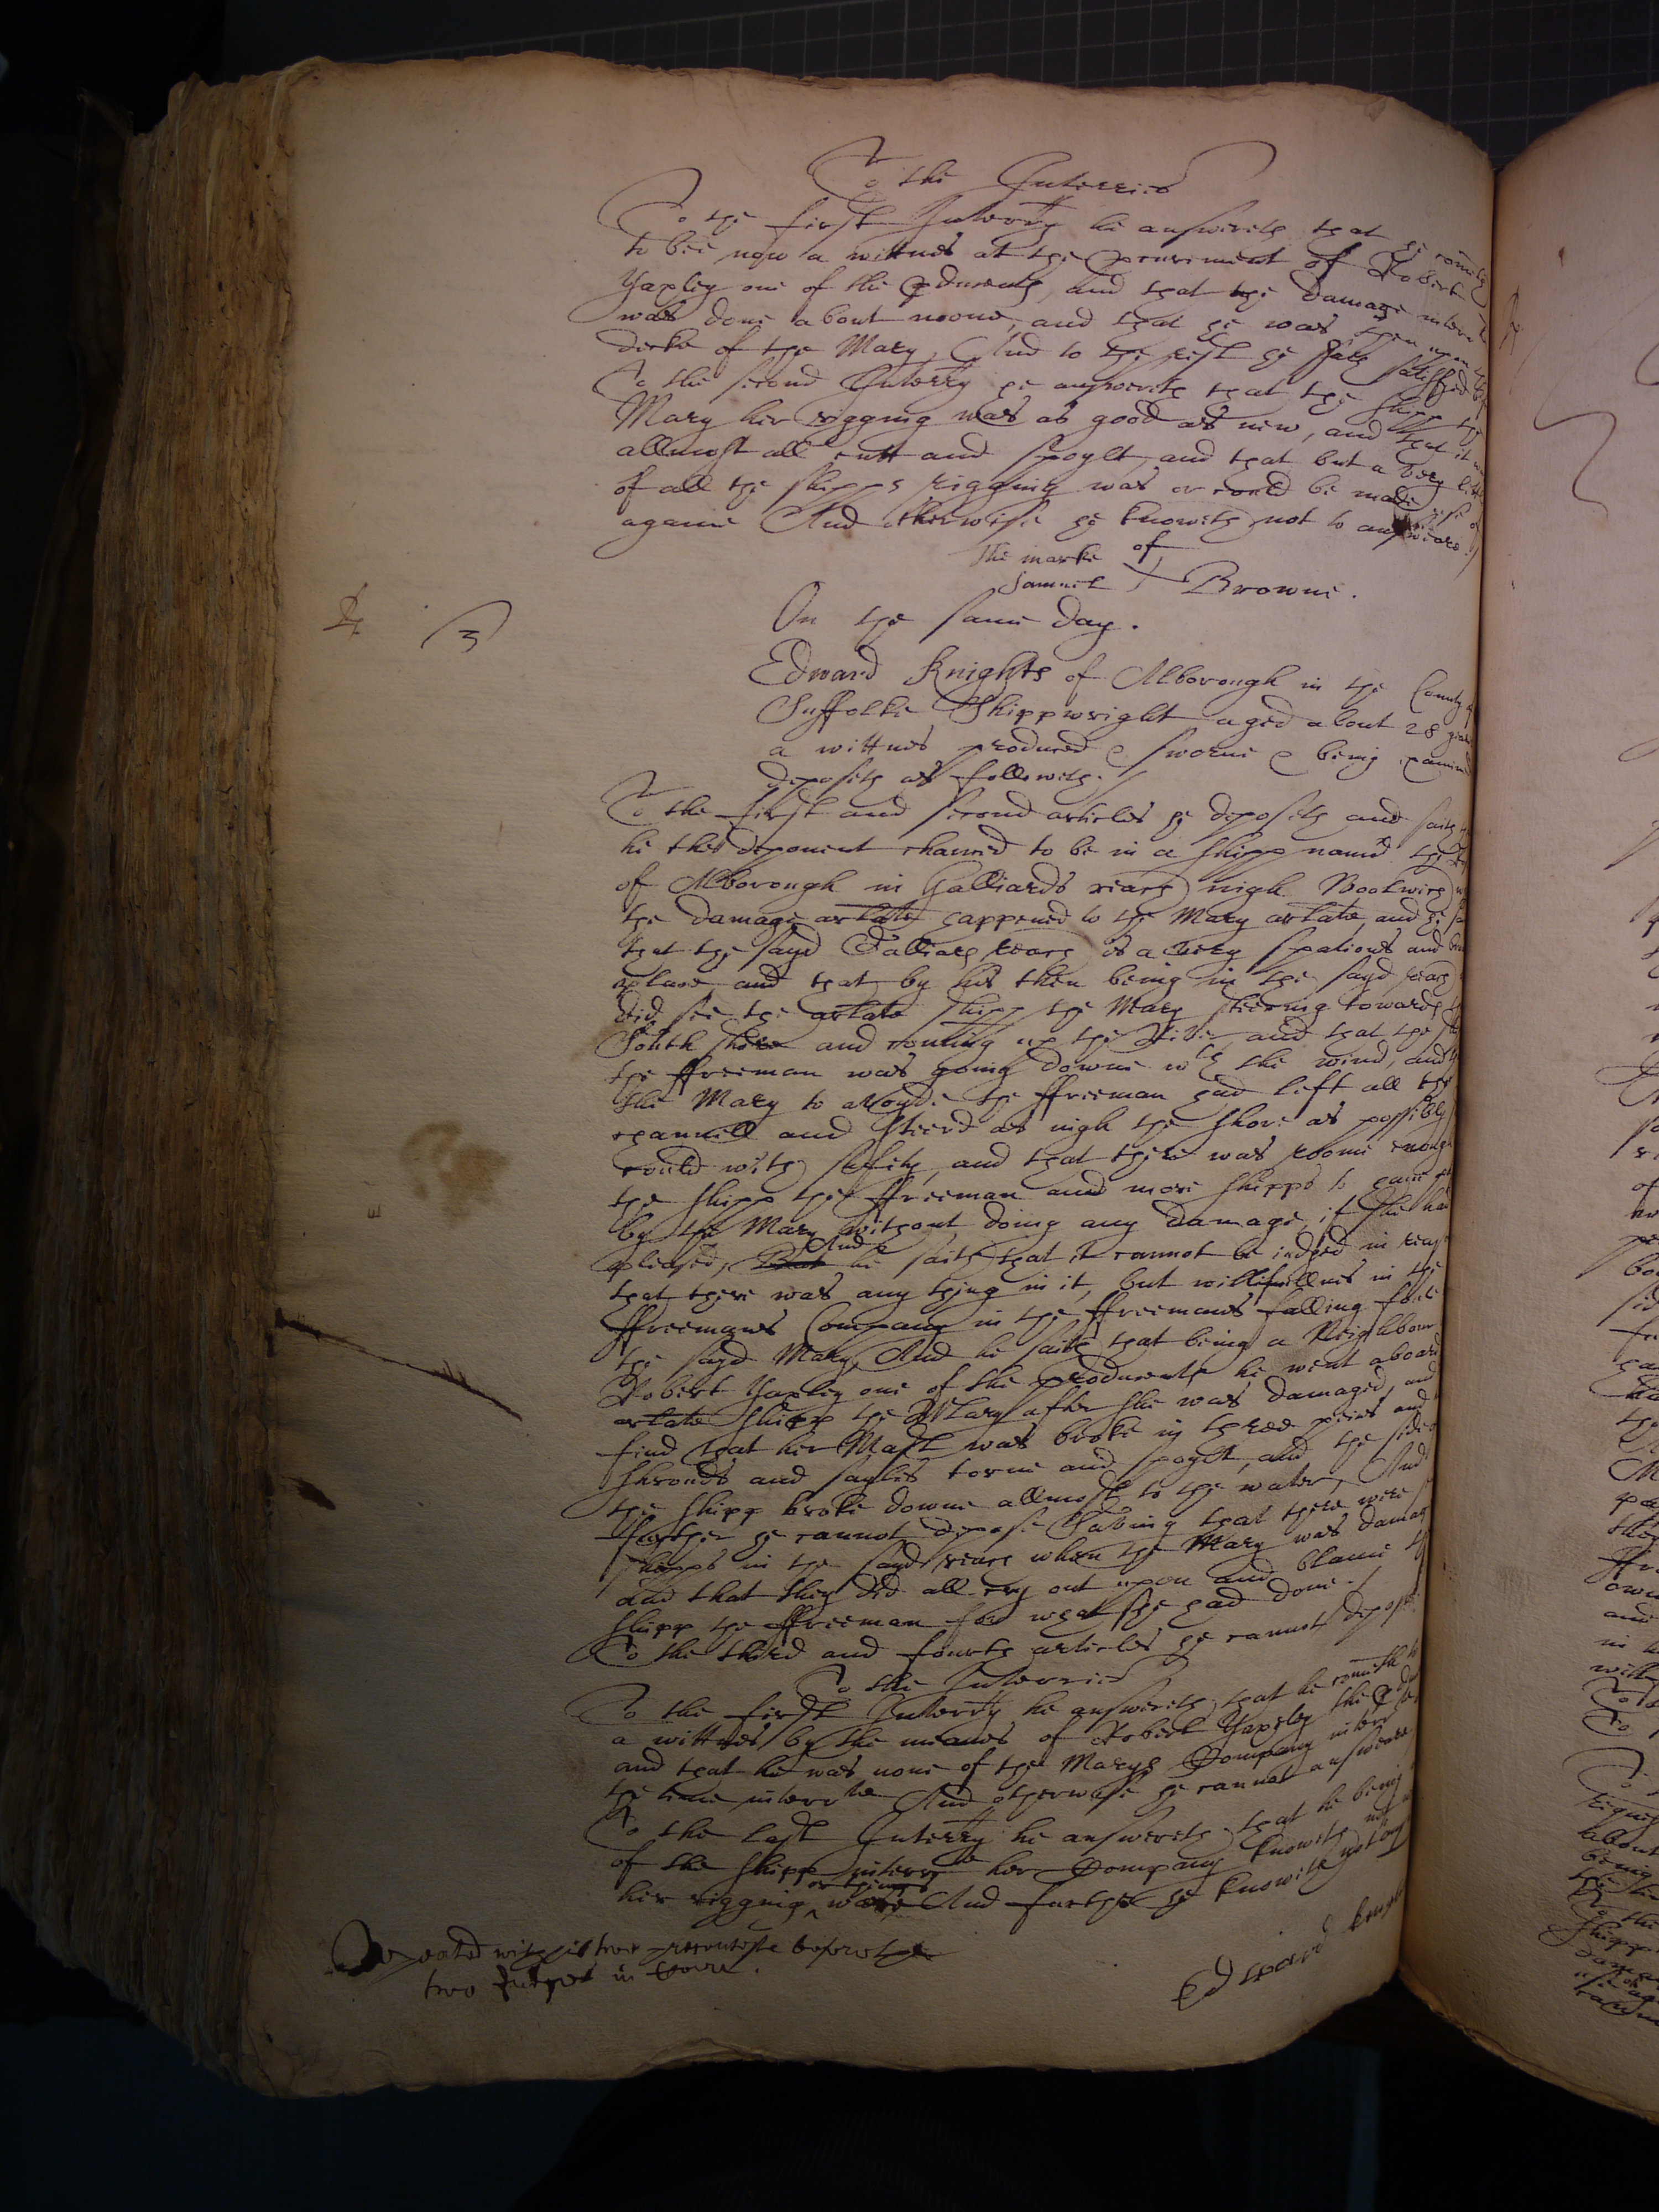 To the Interries
To the first Interry he answereth that he cometh
to bee now a wittnes at the procurement of Robert
Yaxley one of the producents, and that the damage interr
was done about noone, and that he was then upon the
decke of the Mary, And to the rest he hath satisffied
To the second Interry he answereth that the shipp the
Mary her rigging was as good as new, and that it
allmost all cutt and spoylt, and that but a very litt
of all the shipps rigging was or could be made use of
againe And otherwise he knoweth not to answeare./
the marke of
Samuel Browne.
On the same day.
3
Edward Knights of Alborough in the County of
Suffolke Shippwright aged about 28 yeares
a wittnes produced & sworne & being examined
deposeth as followeth./
To the first and second articles he deposeth and saith
he this deponent chanced to be in a shipp named the
of Alborough in Galliards reach nigh Woolwich
the damage arlate happened to the Mary arlate, and he
that the sayd Galliards reach is a very spatious and
place, and that by his then being in the sayd reach
did see the arlate shipp the Mary steering towards
South shore and coming up the River, and that the
the ffreeman was going downe wth the wind, and
the Mary to avoyde the ffreeman had left all the
channell and steerd as nigh the shore as possibly
could with safety, and that there was roome enough
the shipp the ffreeman and more shipps to
by the Mary without doing any damage, if she had
pleased, But And he saith that it cannot be iudged in
that there was any thing in it, but willfullnes in the
ffreemans Company in the ffreemans falling foule
the sayd Mary, And he saith that being a Neighbour
Robert Yaxley one of the producents he went aboard
arlate shipp the Mary after she was damaged, and
find that her Mast was broke in three peeces and
shrouds and sayles torne and spoylt, and the side
the shipp broke downe allmost to the water, And
further he cannot depose Saving that there were
shipps in the sayd reach when the Mary was damaged
and that they did all cry out upon and blame the
shipp the ffreeman for what she had done./
To the third and fourth articles he cannot depose
To the Interries
To the first Interry he answereth that he cometh
a wittnes by the meanes of Robert Yaxley the
and that he was none of the Marys Company interr
the time interrte And otherwise he cannot answeare
To the last Interry he answereth that he being
of the shipp interrte her Company knoweth not
her rigging or things were And further he knoweth not
Edward
Repeated two before the
two Judges in Court.